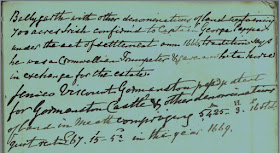 Bellyfarth with other denominations of land containing
700 acres Irish confirmed to Captain George Peppard
under the act of settlement anno 1666, tradition says
he was a Cromwellian Trumpeter & gave a to his horse
in exchange for the estate.
Jenico Viscount Gormanston passed patent
for Gormanston Castle & other denominations
of land in Meath comprising 5425 . 3 . 16 stat
Quit rent £67 . 15 - 5½ in the year 1669.